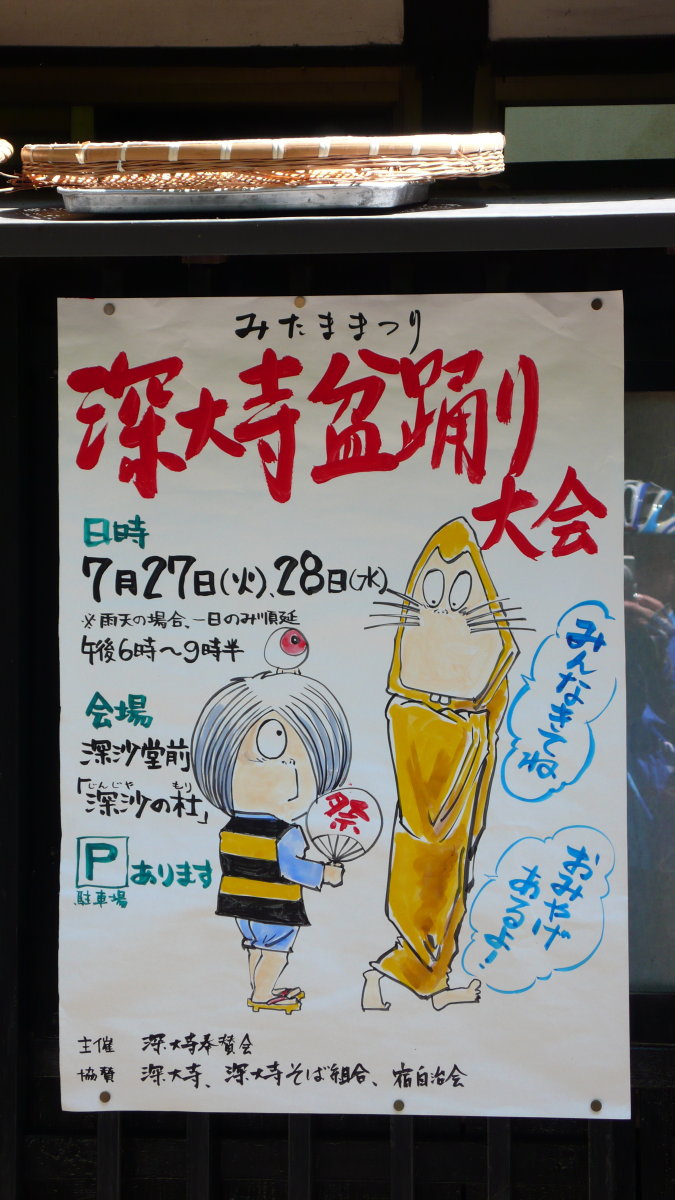 みたままつり
深大寺盆踊り
大会
日時
7月27日(火)、28日(水)
※雨天の場合、一日のみ順延
午後6時〜9時半
会場
深沙堂前
「深沙の杜」
じんじゃ もり
P あります
駐車場
祭
みんなきてね
おみやげ
あるよ!
主催 深大寺奉賛会
協賛 深大寺、深大寺そば組合、宿自治会